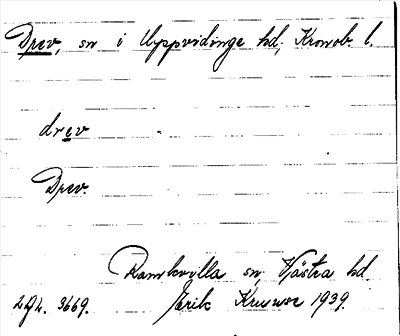 Drev, sn i Uppvidinge hd, Kronob. l.
drev
Drev.
Ramkvilla sn, Västra hd.
Erik Kruuse 1939.